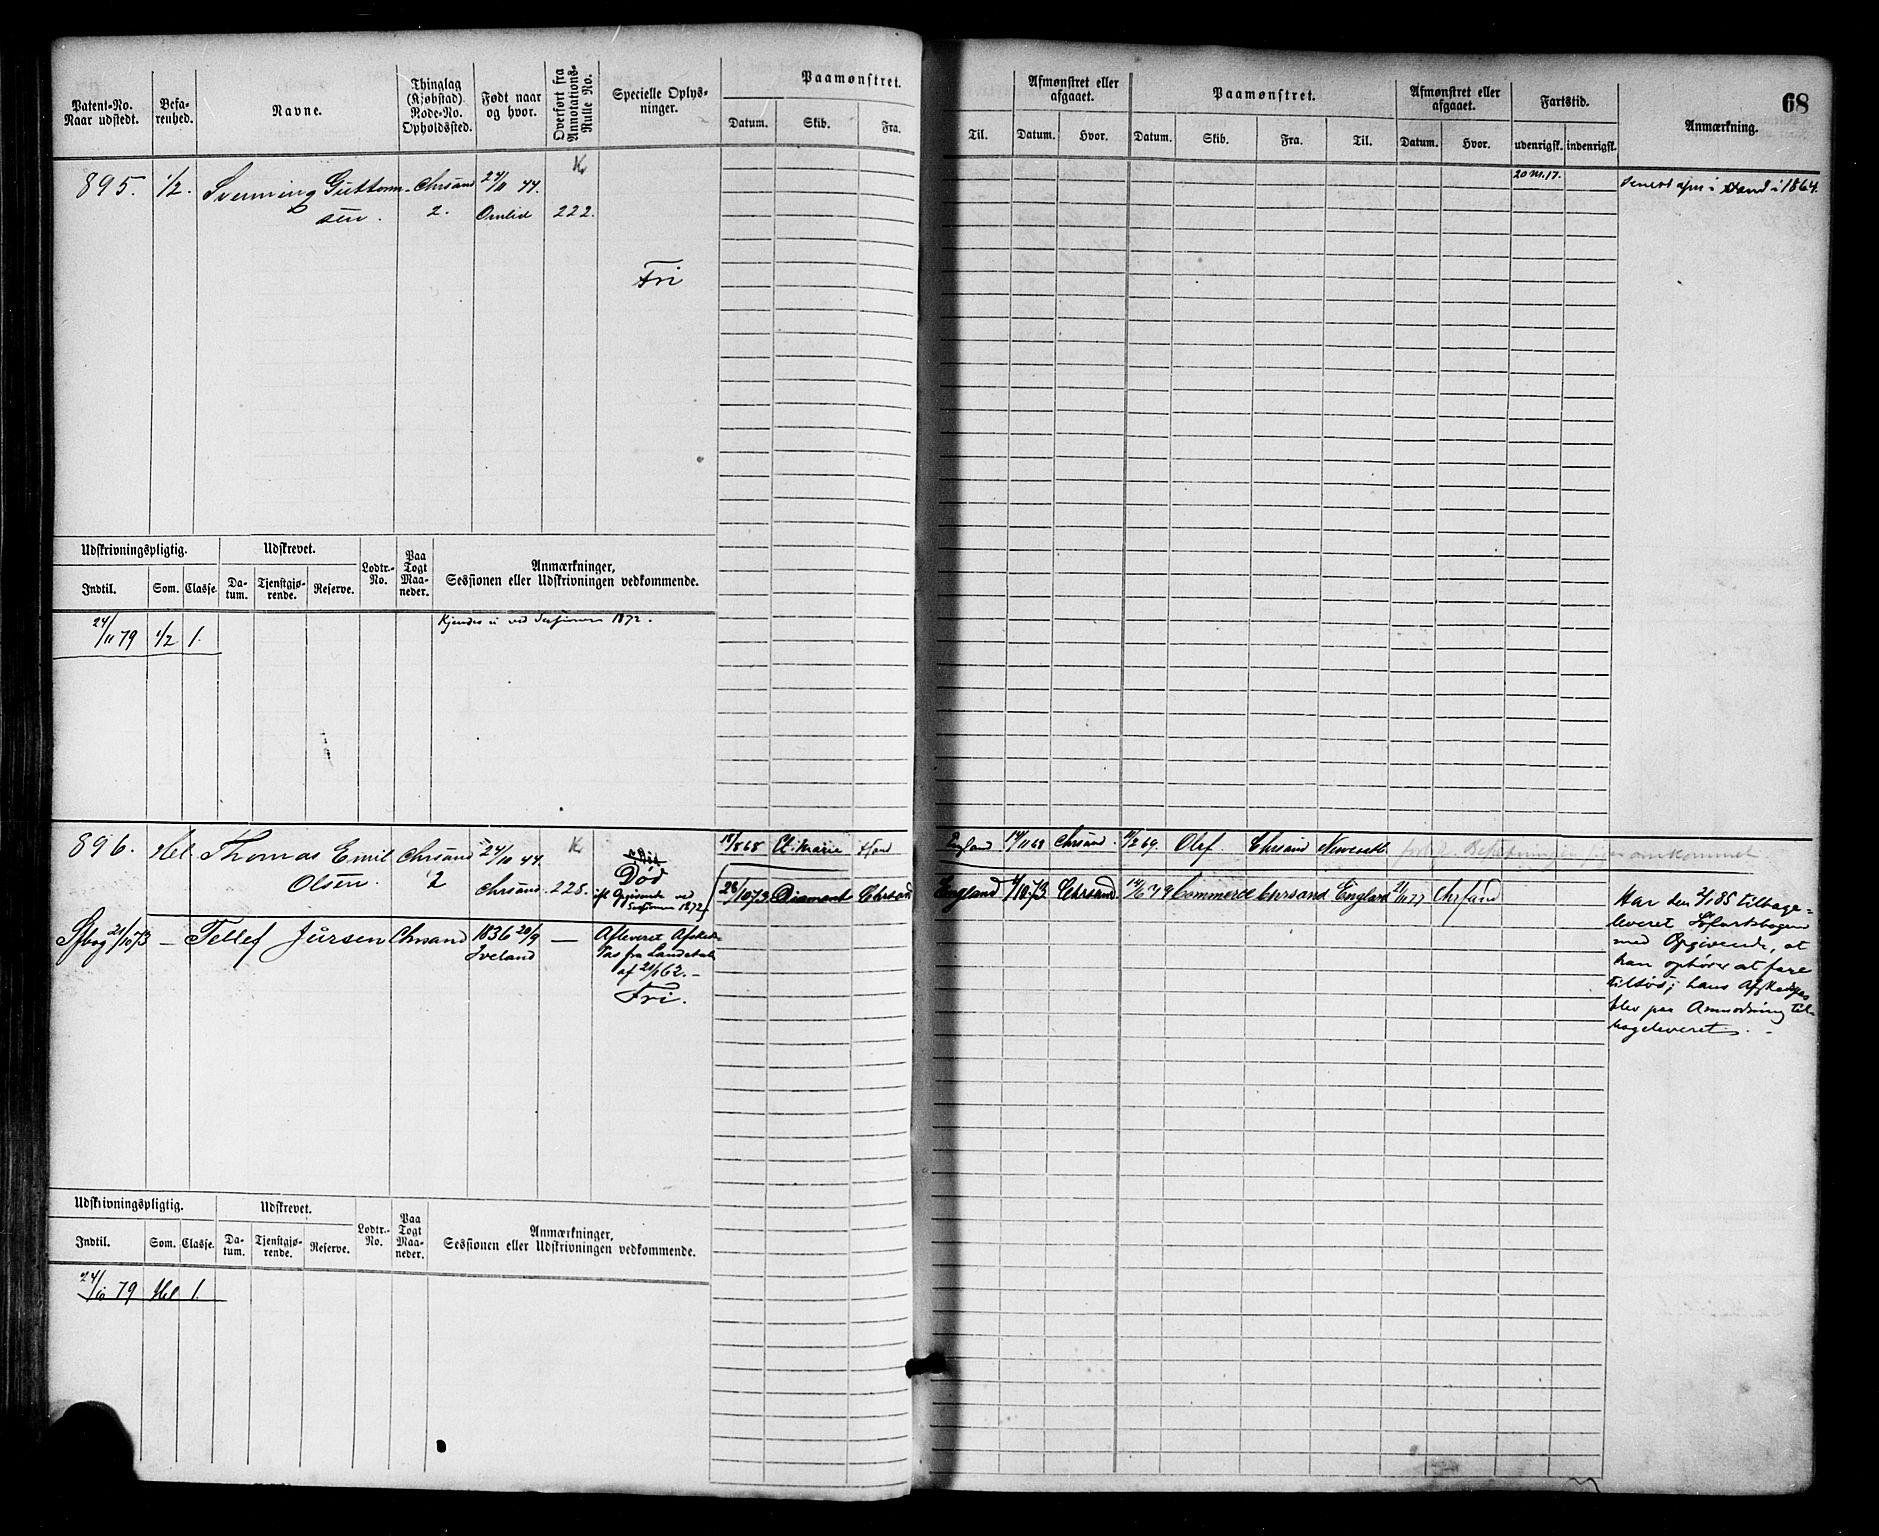 68
Patent-No. Naar udstedt.
Befa-renhed.
Navne.
Thinglag (Kjøbstad) Rode-No. Opholdssted.
Født naar og hvor.
Overført fra Annotations-Rulle No.
Specielle Oplys-ninger.
Paamønstret.
Datum. Skib. Fra. Til.
Afmønstret eller afgaaet.
Datum. Hvor.
Paamønstret.
Datum. Skib. Fra. Til.
Afmønstret eller afgaaet.
Datum. Hvor.
Fartstid.
udenrigsk. indenrigsk.
Anmærkning.
895. 1/2. Svenning Guttorm- Chrsand 24/11 44. K
sen. 2. Omlid 222.
Fri
20 M. 17.
i 1864.
Udskrivningspligtig. Udskrevet. Lodtr.-No. Paa Togt Maa-neder. Anmærkninger,
Indtil. Som. Classe. Da-tum. Tjenstgjø-rende. Reserve. Sessionen eller Udskrivningen vedkommende.
24/11 79 1/2 1. Kjendes ei ved Sessionen 1872.
896. Hel Thomas Emil Chrsand 24/10 44. K
Olsen. 2 Chrsand. 228.
Død
ifl. Opgivende ved
Sessionen 1872
18/8 68 Cl. Marie Hand England 14/11 68 Chrsand 11/2 69. Olef. Chrsand Newcastle
omkommet
Sfbog 21/10 73 — Tellef Jürsen Chrsand 1836 20/9 —
Iveland
Afleveret Afskeds-
Pas fra Landetaten
af 21/1 62. —
Fri.
28/10 73 Diamant Chrsand England 4/10 73 Chrsand 14/6 79 Commerce Chrsand England 21/11 77 Chrsand
Har den 2/1 85 tilbage=
leveret Søfartsbogen
med Opgivende, at
han ophører at fare
tilsøs; hans Afskedspas
blev paa Anmodning til-
bageleveret. —
Udskrivningspligtig. Udskrevet. Lodtr.-No. Paa Togt Maa-neder. Anmærkninger,
Indtil. Som. Classe. Da-tum. Tjenstgjø-rende. Reserve. Sessionen eller Udskrivningen vedkommende.
24/10 79 Hel 1.